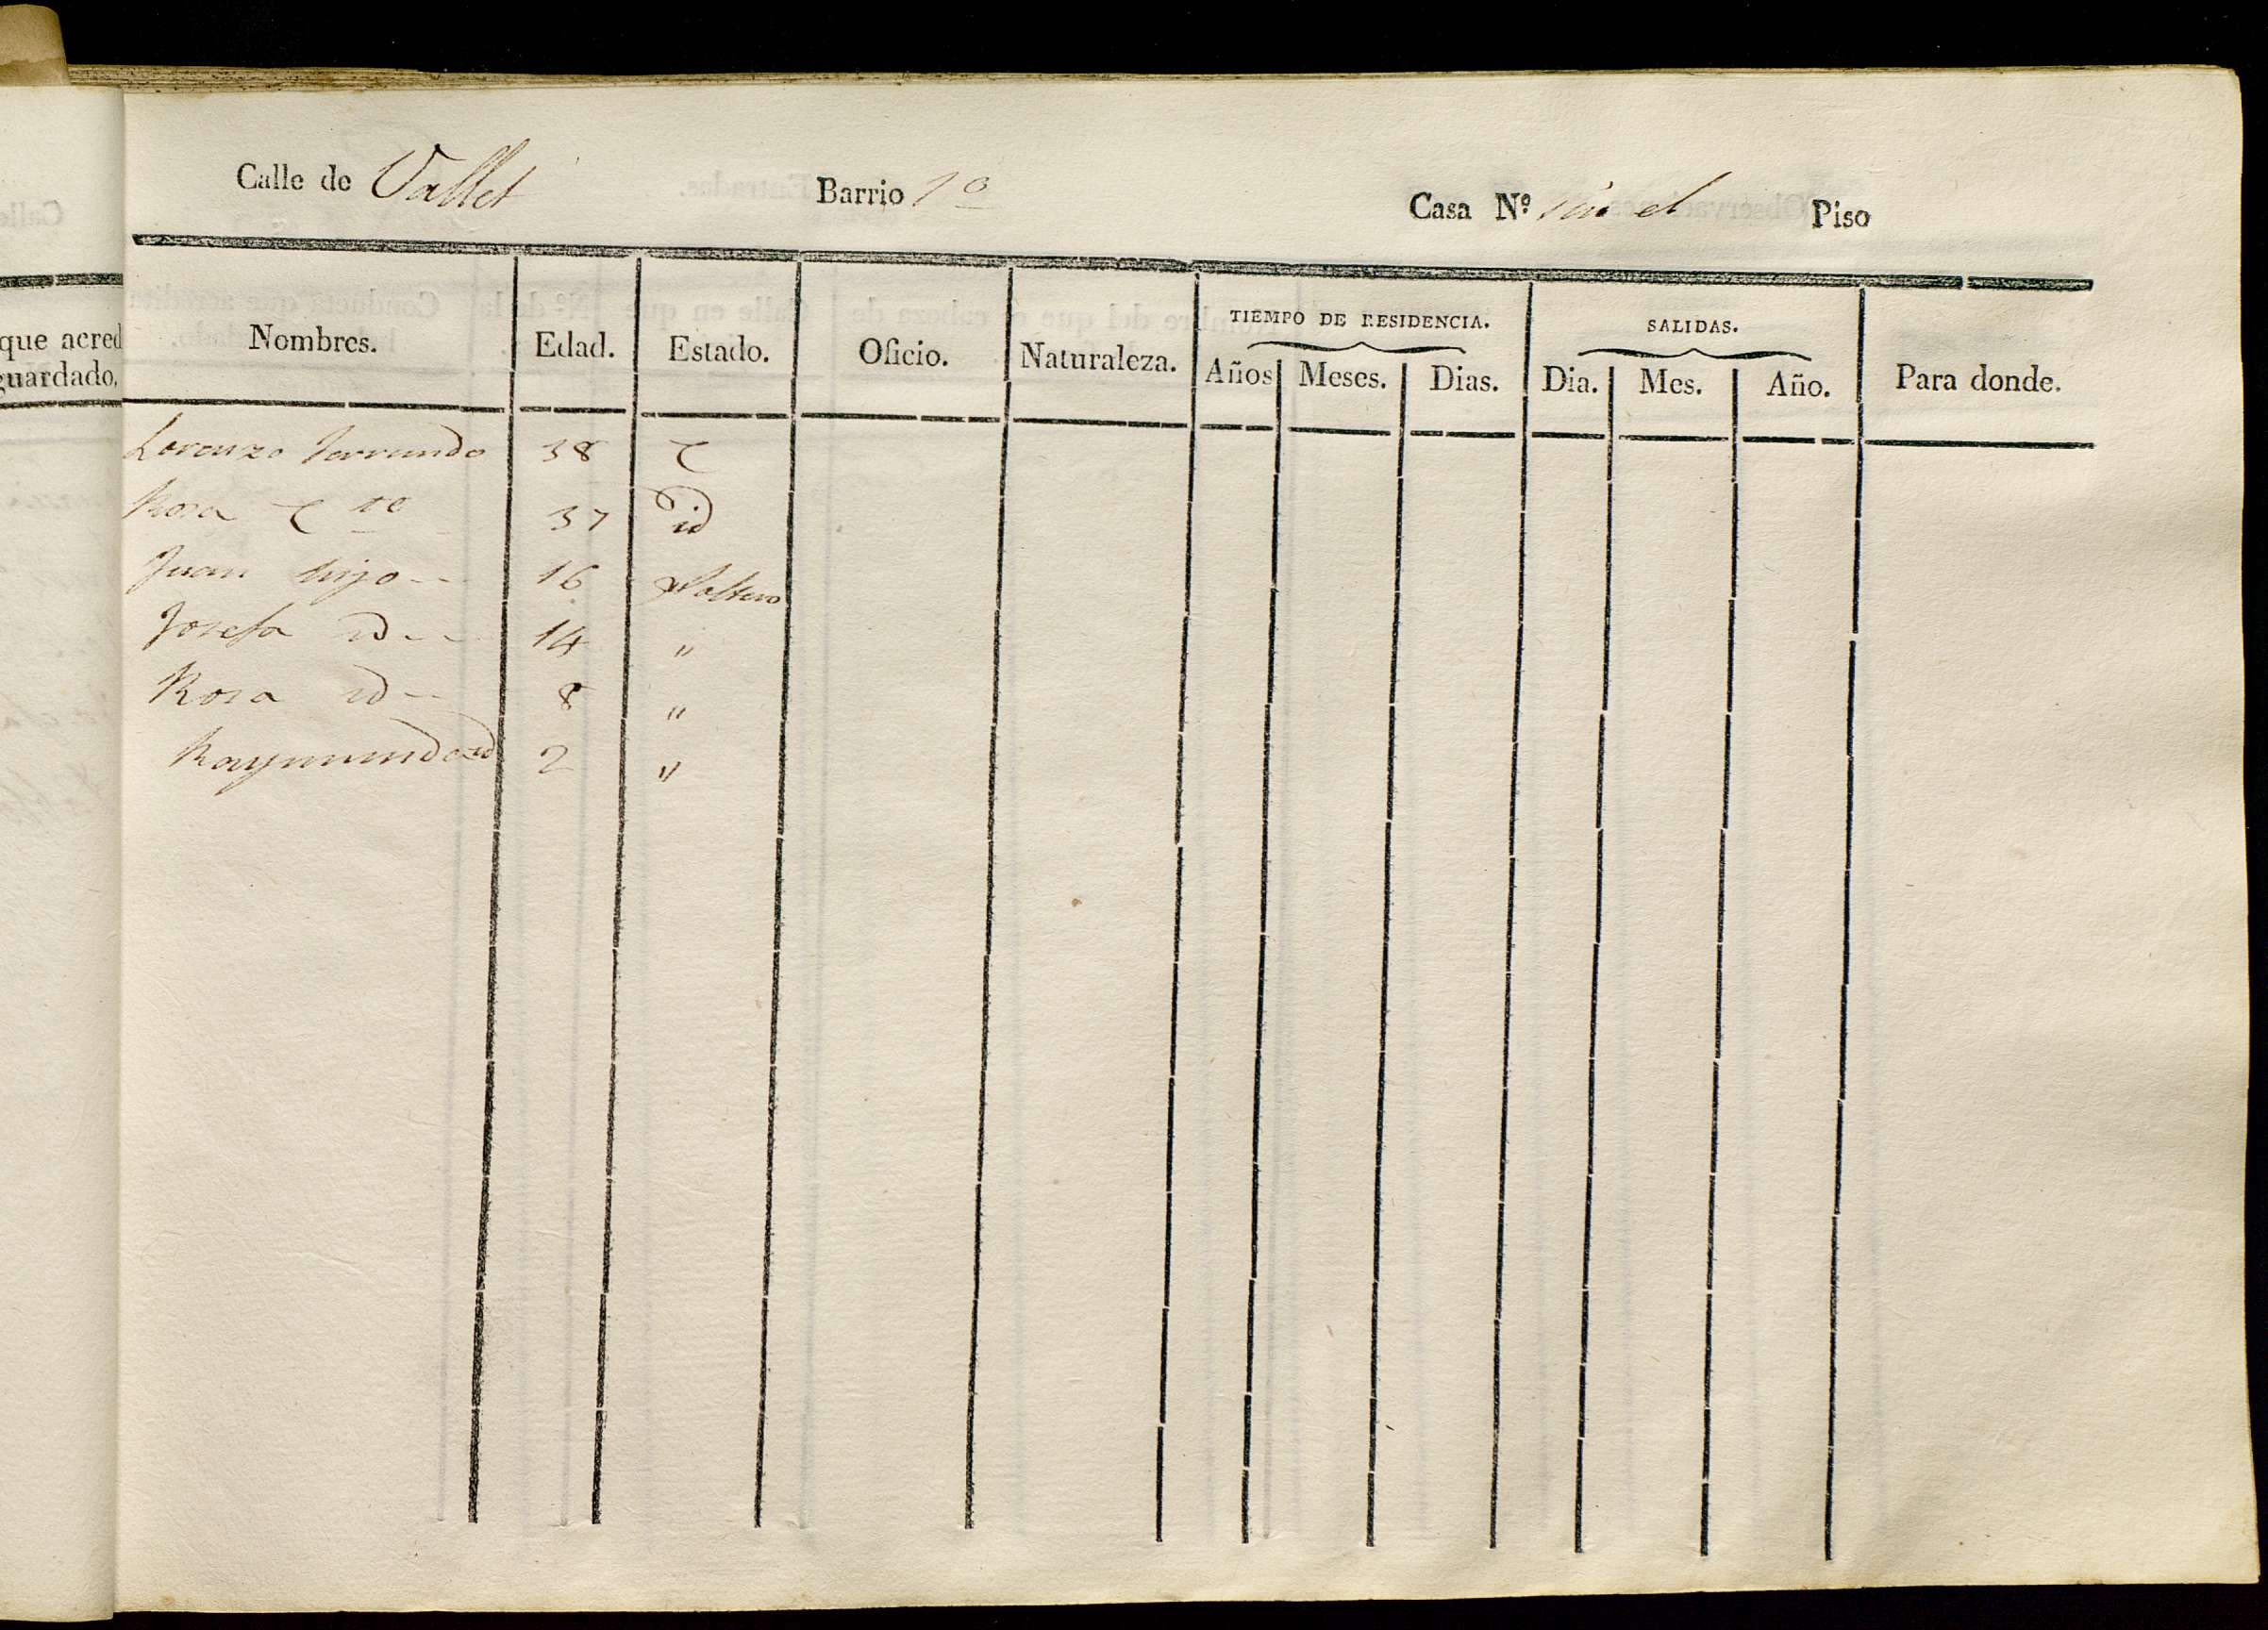 Calle de Vallet Barrio 1º Casa Nº sin el Piso
que acred
guardado,
Nombres. Edad. Estado. Oficio. Naturaleza. TIEMPO DE RESIDENCIA. SALIDAS. Para donde.
Años Meses. Dias. Dia. Mes. Año.
Lorenzo Ferrando 38 C
Rosa C 37 id
Juan hijo -- 16 Soltero
Josefa id -- 14 "
Rosa id -- 8 "
Raymundo id 2 "